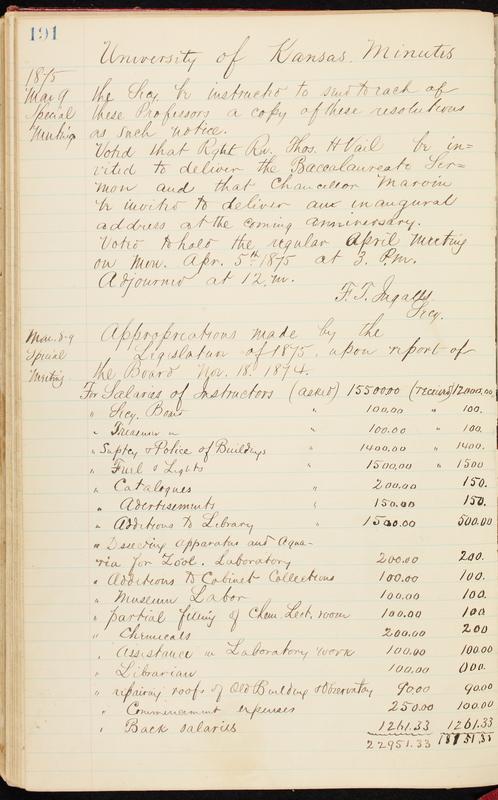 191
University of Kansas Minutes
1875
Mar 9
Special
Meeting
the Secy be instructed to send to each of
these Professors a copy of these resolutions
as such notice.
Voted that Right Rv. Thos. H Vail be in-
vited to deliver the Baccalaureate Ser=
mon and that Chancellor Marvin
be invited to deliver an inaugural
address at the coming anniversary.
Voted to hold the regular April meeting
on Mon. Apr. 5th 1875 at 3. P.m.
Adjourned at 12. m.
F. T. Ingalls
Secy.
Mar. 8-9
Special
Meeting
Appropriations made by the
Legislature of 1875. upon report of
the Board Nov. 18. 1874.
For Salaries of Instructors (asked) 15500.00 (received) 12000.00
" Secy. Board " 100.00 " 100.
" Treasurer " " 100.00 " 100.
" Suptcy & Police of Buildings " 1400.00 " 1400.
" Fuel & Lights " 1500.00 " 1500
" Catalogues " 200.00 150.
" Advertisements " 150.00 150.
" Additions to Library " 1500.00 500.00
" Dissecting apparatus and Aqua-
ria for Zool. Laboratory 200.00 200.
" Additions to Cabinet Collections 100.00 100.
" Museum Labor 100.00 100.
" partial filling of Chem Lect. room 100.00 100
" Chemicals 200.00 200
" Assistance in Laboratory work 100.00 100.00
" Librarian 100.00 000.
" repairing roofs of Old Building & Observatory 90.00 90.00
" Commencement expenses 250.00 100.00
" Back salaries 1261.33 1261.33
22951.33